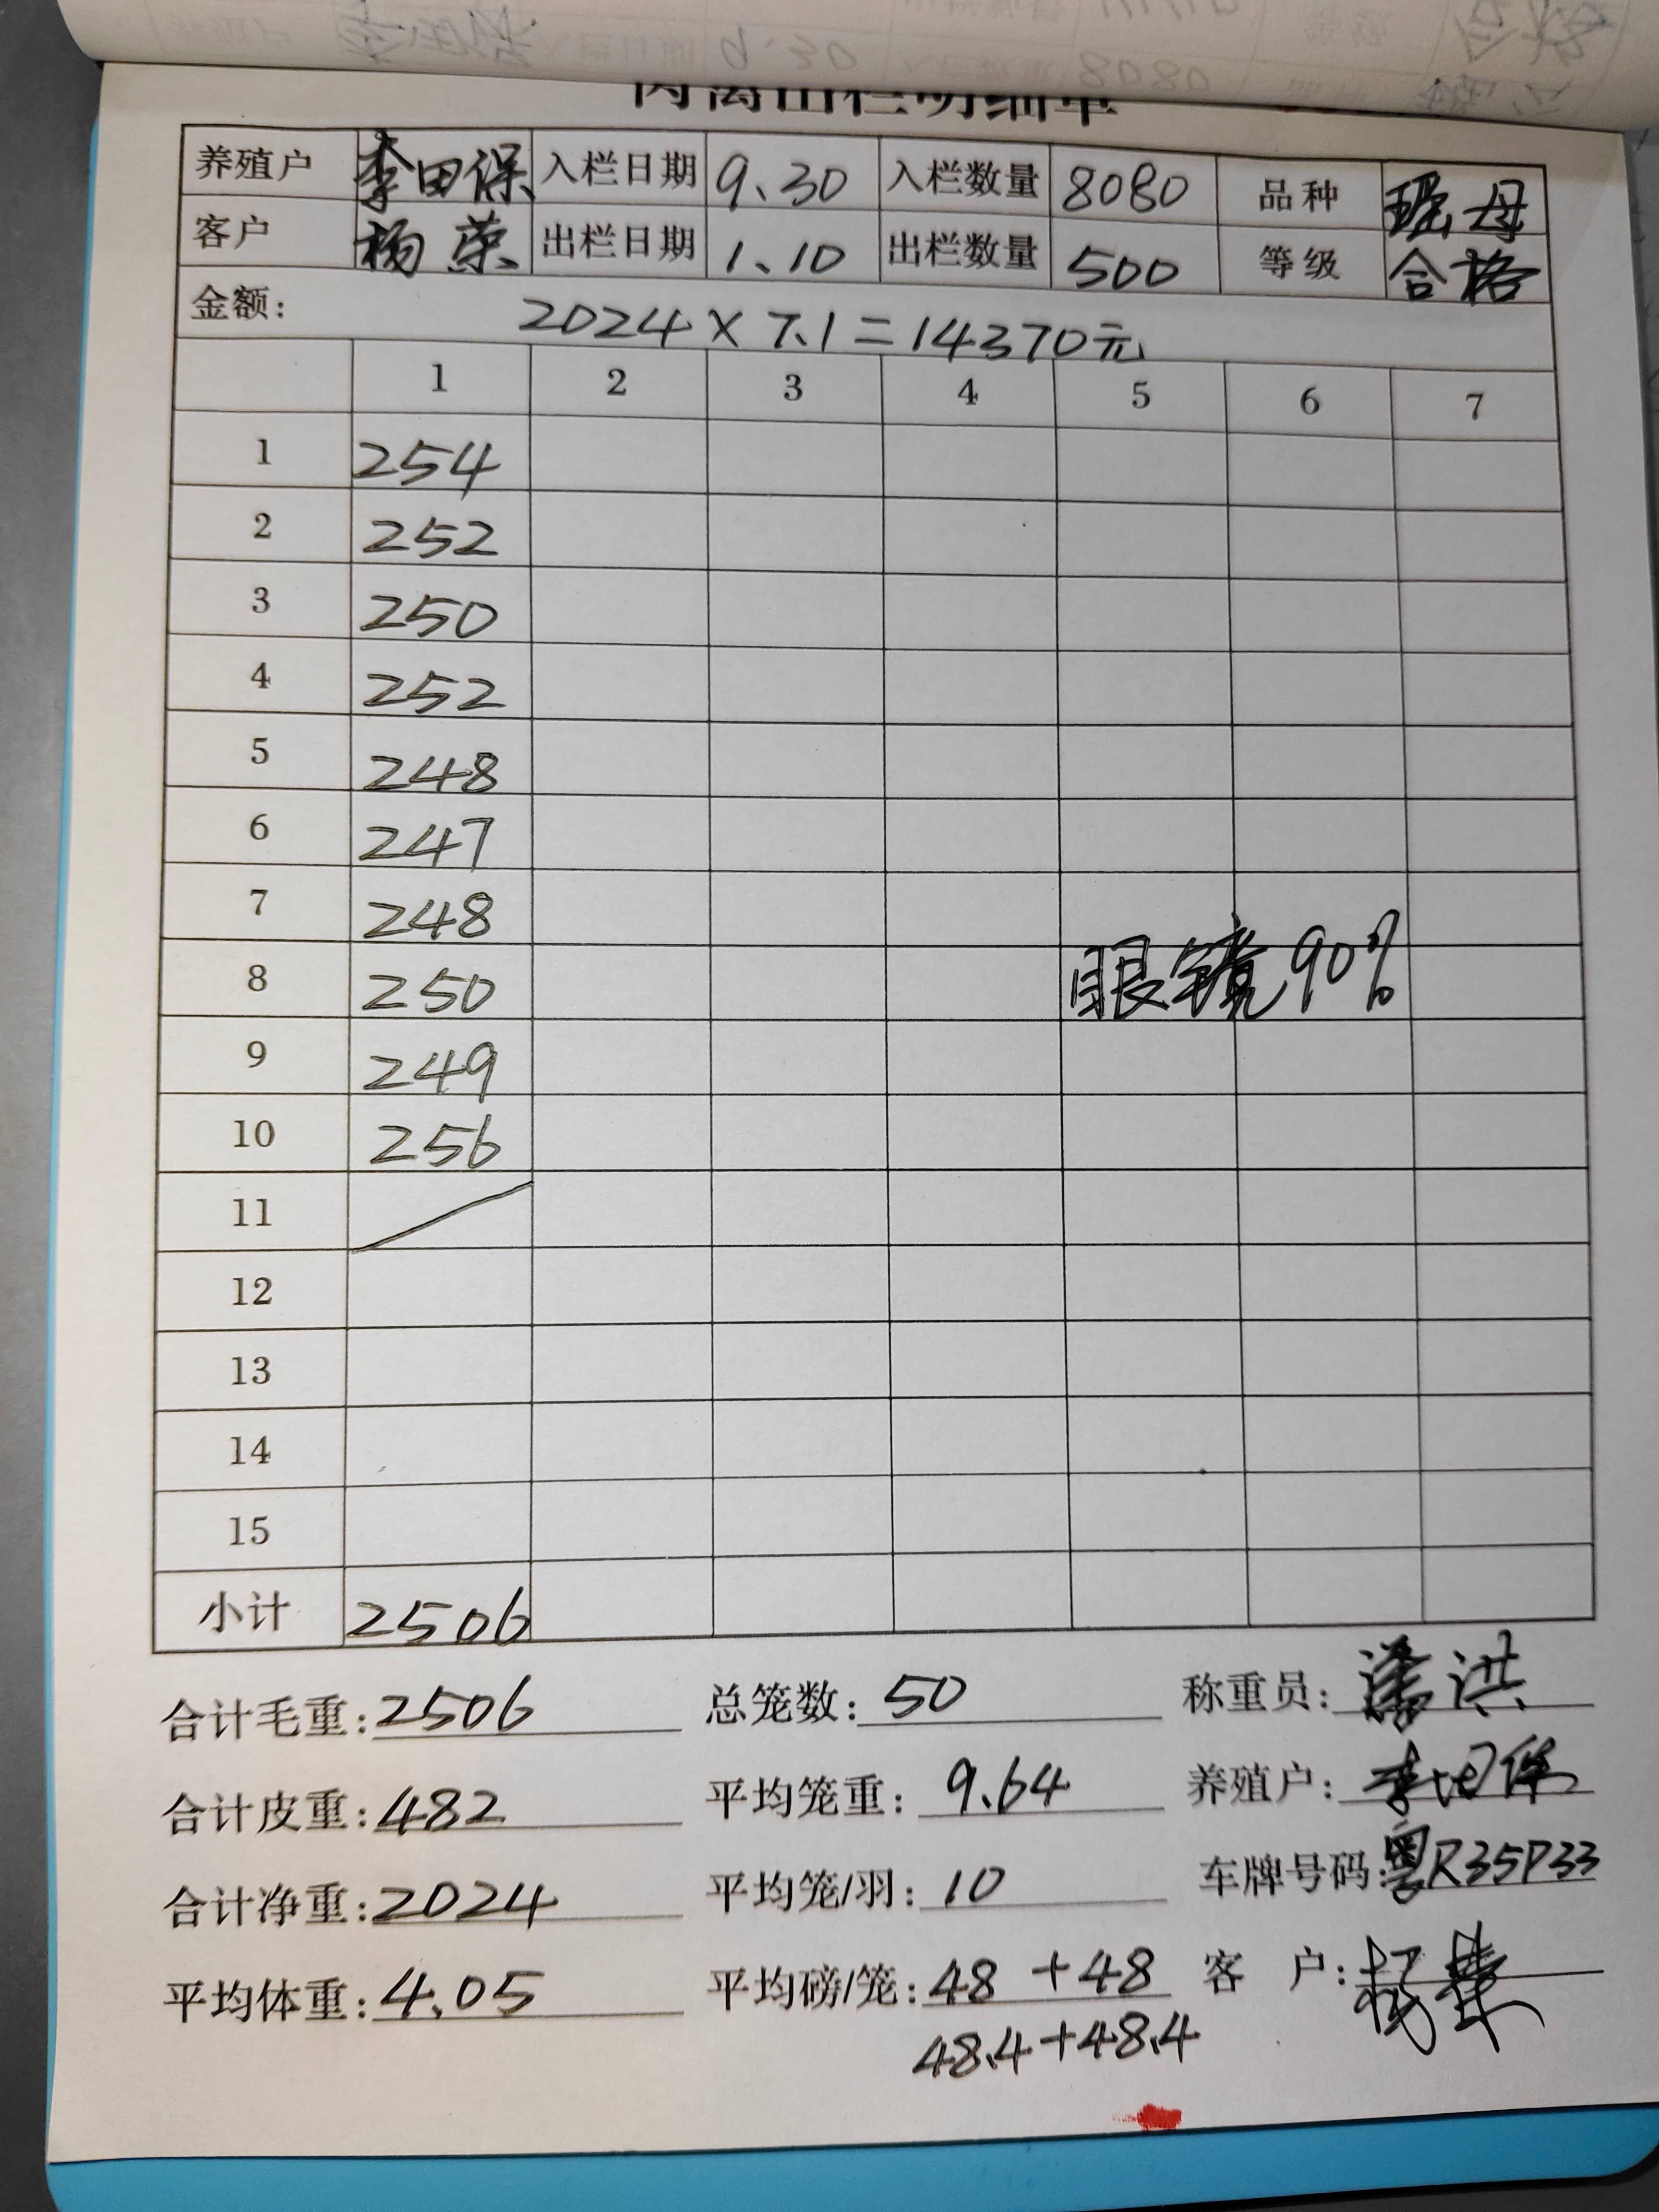 肉禽出栏明细单
养殖户 李田保 入栏日期 9.30 入栏数量 8080 品种 瑶母
客户 杨荣 出栏日期 1.10 出栏数量 500 等级 合格
金额: 2024×7.1=14370元
1 2 3 4 5 6 7
1 254
2 252
3 250
4 252
5 248
6 247
7 248
8 250 眼镜90%
9 249
10 256
11
12
13
14
15
小计 2506
合计毛重:2506 总笼数:50 称重员:潘洪
合计皮重:482 平均笼重:9.64 养殖户:李田保
合计净重:2024 平均笼/羽:10 车牌号码:粤R35P33
平均体重:4.05 平均磅/笼:48+48 客户:杨荣
48.4+48.4